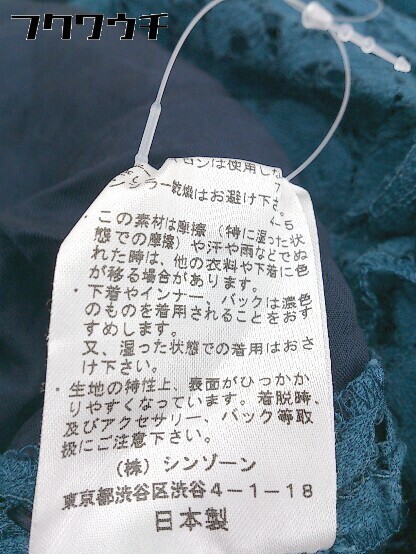 フクワウチ
ロンは使用しな
ンブラー乾燥はお避け下さ。
4-5
・この素材は摩擦（特に湿った状
態での摩擦）や汗や雨などでぬ
れた時は、他の衣料や下着に色
が移る場合があります。
・下着やインナー、バックは濃色
のものを着用されることをおす
すめします。
又、湿った状態での着用はおさ
け下さい。
・生地の特性上、表面がひっかか
りやすくなっています。着脱時、
及びアクセサリー、バック等取
扱にご注意下さい。
（株）シンゾーン
東京都渋谷区渋谷4-1-18
日本製